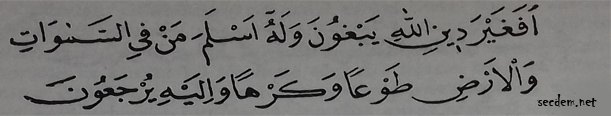 اَفَغَيْرَ دِينِ اللّٰهِ يَبْغُونَ وَلَهُٓ اَسْلَمَ مَنْ فِي السَّمٰوَاتِ
وَالْاَرْضِ طَوْعًا وَكَرْهًا وَاِلَيْهِ يُرْجَعُونَ
secdem.net